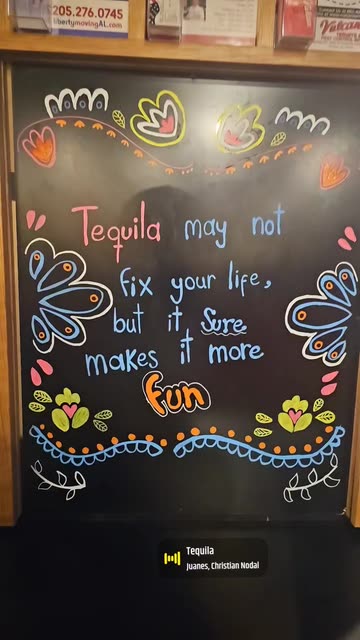 205.276.0745
libertymovingAL.com
Tequila may not
fix your life,
but it Sure
makes it more
fun
Tequila
Juanes, Christian Nodal